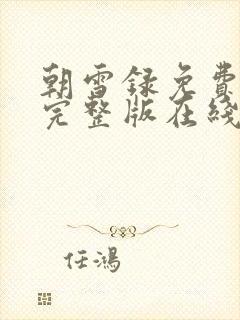 朝雪録免費
完整版在綫
任鴻